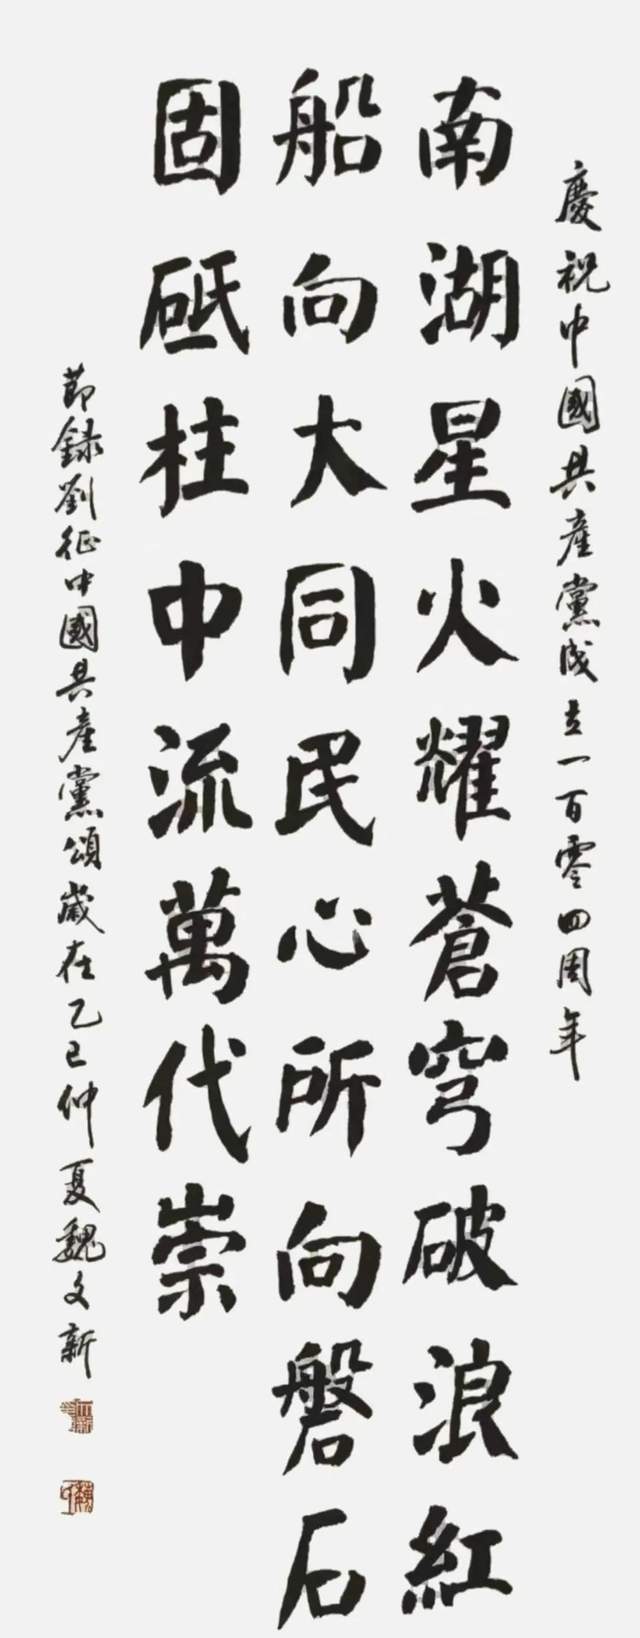 慶祝中國共產黨成立一百零四周年
南湖星火耀蒼穹破浪紅
船向大同民心所向磐石
固砥柱中流萬代崇
節録劉征中國共產黨頌歲在乙巳仲夏魏文新